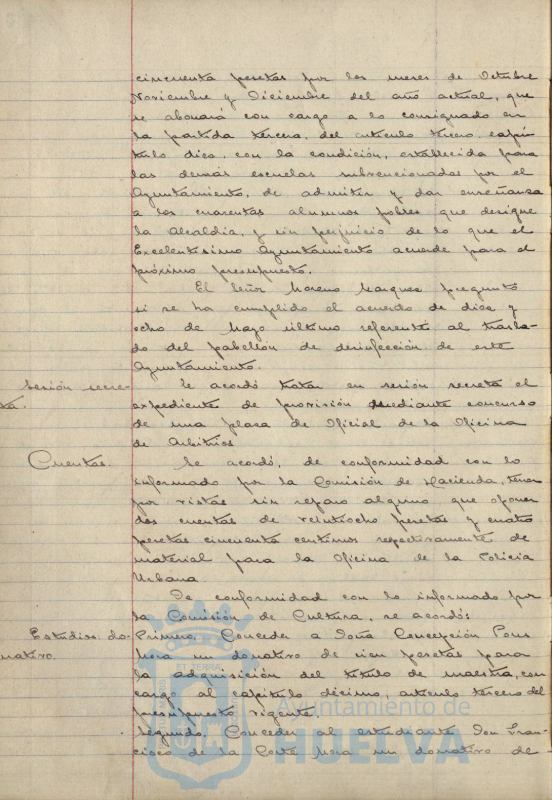 cincuenta pesetas por los meses de Octubre
Noviembre y Diciembre del año actual, que
se abonará con cargo a lo consignado en
la partida tercera, del artículo tercero, capí-
tulo diez, con la condición, establecida para
las demás escuelas subvencionadas por el
Ayuntamiento, de admitir y dar enseñanza
a los cuarenta alumnos pobres que designe
la Alcaldía, y sin perjuicio de lo que el
Excelentísimo Ayuntamiento acuerde para el
próximo presupuesto.
El Señor Moreno Marquez preguntó
si se ha cumplido el acuerdo de diez y
ocho de Mayo último referente al trasla-
do del pabellón de desinfección de este
Ayuntamiento.
Sesión secre-
ta.
Se acordó tratar en sesión secreta el
expediente de provisión mediante concurso
de una plaza de Oficial de la Oficina
de Arbitrios
Cuentas.
Se acordó, de conformidad con lo
informado por la Comisión de Hacienda, tener
por vistas sin reparo alguno que oponer
dos cuentas de veintiocho pesetas y cuatro
pesetas cincuenta centimos respectivamente de
material para la Oficina de la Policia
Urbana
De conformidad con lo informado por
la Comisión de Cultura, se acordó:
Estudios do-
nativo.
Primero. Conceder a Doña Concepción Pons
Mora un donativo de cien pesetas para
la adquisición del título de maestra, con
cargo al capítulo décimo, artículo tercero del
presupuesto vigente.
Segundo. Conceder al estudiante Don Fran-
cisco de la Corte Mora un donativo de
Ayuntamiento de
HUELVA